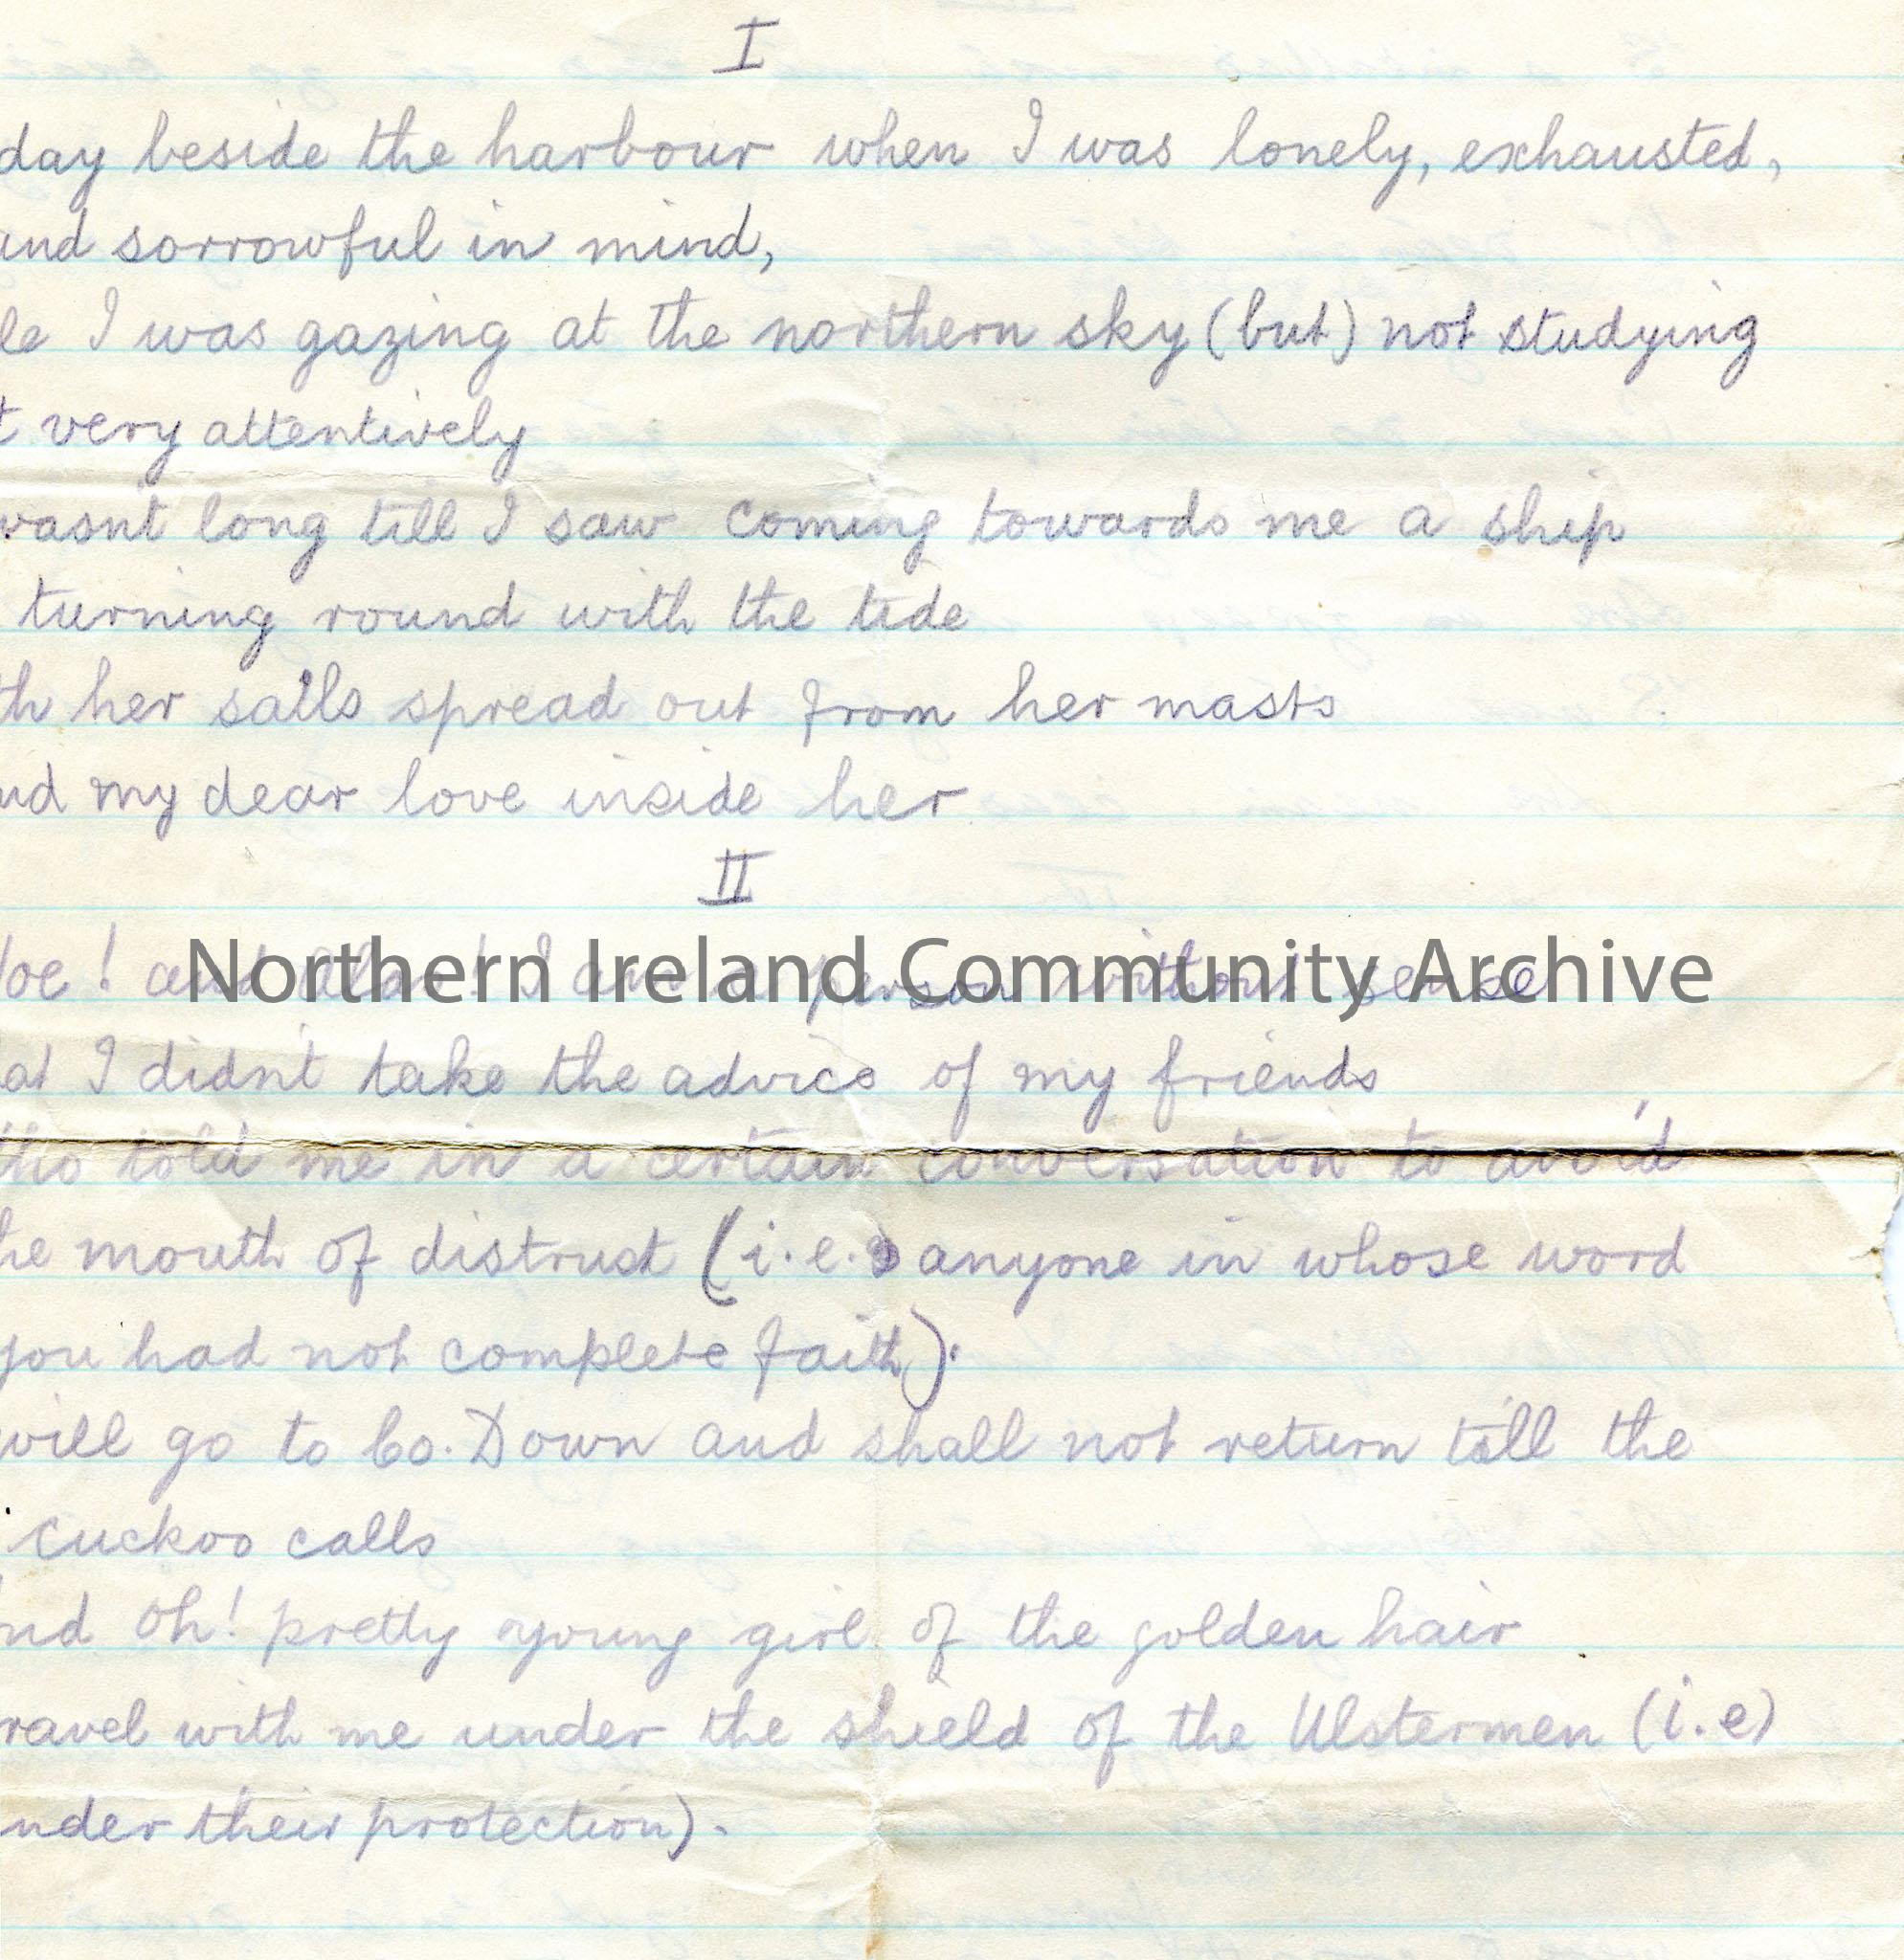 I
day beside the harbour when I was lonely, exhausted,
and sorrowful in mind,
le I was gazing at the northern sky (but) not studying
t very attentively
wasnt long till I saw coming towards me a ship
turning round with the tide
th her sails spread out from her masts
nd my dear love inside her
II
oe! and alas! I am a person without sense
Northern Ireland Community Archive
at I didn't take the advice of my friends
ho told me in a certain conversation to avoid
he mouth of distrust (i.e. anyone in whose word
you had not complete faith).
will go to Co. Down and shall not return till the
cuckoo calls
nd oh! pretty young girl of the golden hair
ravel with me under the shield of the Ulstermen (i.e)
nder their protection).